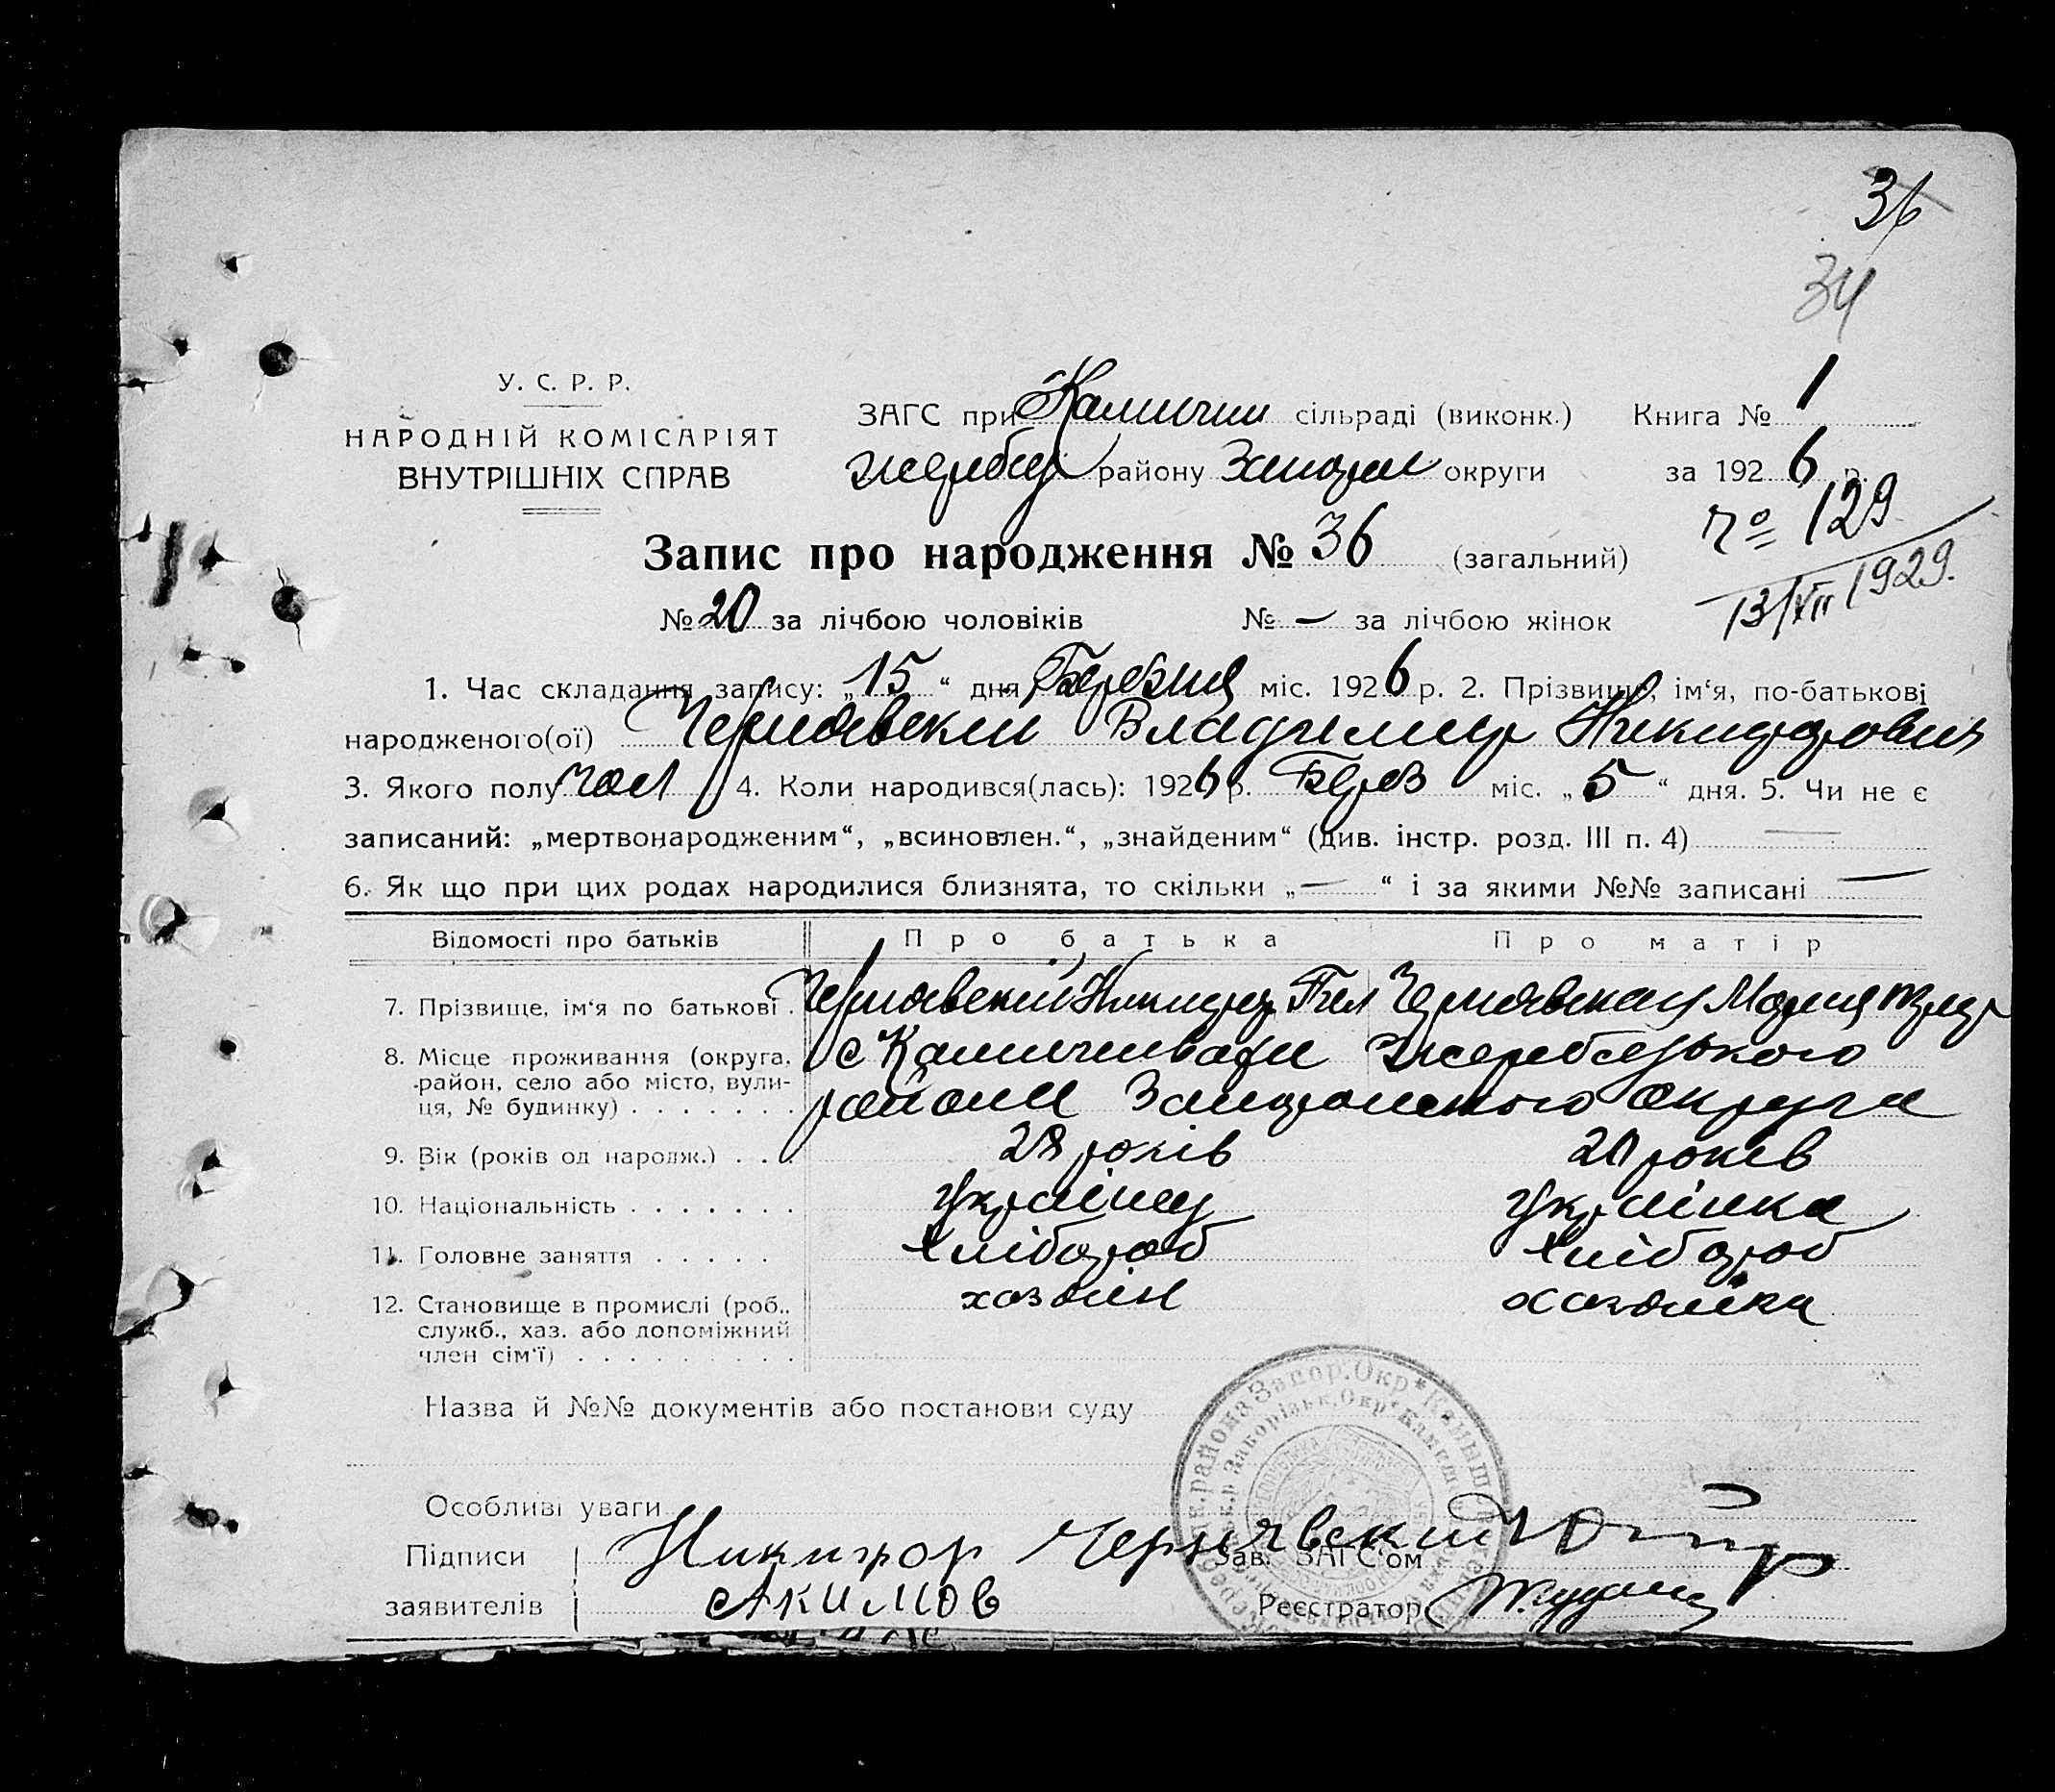 36
34
У. С. Р. Р.
НАРОДНІЙ КОМІСАРІЯТ
ВНУТРІШНІХ СПРАВ
ЗАГС при сільраді (виконк.) Книга № 1
Жеребец району Запорож округи за 1926 р.
№ 129
13/VII 1929.
Запис про народження № 36 (загальний)
№ 20 за лічбою чоловіків № — за лічбою жінок
1. Час складання запису: „15“ дня Березня міс. 1926 р. 2. Прізвище, ім‘я, по-батькові
народженого(ої) Чернявский Владимир Никифорович
3. Якого полу чол 4. Коли народився(лась): 1926 р. Берез міс. „5“ дня. 5. Чи не є
записаний: „мертвонародженим“, „всиновлен.“, „знайденим“ (див. інстр. розд. III п. 4) —
6. Як що при цих родах народилися близнята, то скільки „—“ і за якими №№ записані —
Відомості про батьків Про батька Про матір
7. Прізвище, ім‘я по батькові . Чернявский Никифор Чернявская Мария
8. Місце проживання (округа, с
район, село або місто, вули- Жеребецького
ця, № будинку) . . . . . . . району Запорожского округа
9. Вік (років од народж.) . . . 28 років 20 років
10. Національність . . . . . . . Українец Українка
11. Головне заняття . . . . . хлібороб хлібороб
12. Становище в промислі (роб., хозяін хозяіка
служб., хаз. або допоміжний
член сім‘ї) . . . . . . . . .
Назва й №№ документів або постанови суду
Особливі уваги
Підписи Никифор Чернявский Зав. ЗАГС‘ом
заявителів Акимов Реєстратор